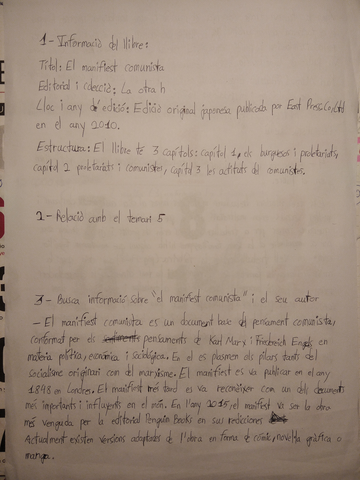 1- Informació del llibre:
Títol: El manifest comunista
Editorial i colecció: La otra h
Lloc i any d'edició: Edició original japonesa publicada por East Press Co, Ltd
en el any 2010.
Estructura: El llibre te 3 capítols: capítol 1, els burguesos i proletariats,
capítol 2 proletariats i comunistes, capítol 3 les actituts del comunistes.
2- Relació amb el temari 5
3- Busca informació sobre "el manifest comunista" i el seu autor
- El manifest comunista es un document base del pensament comunista,
conformat per els pensaments de Karl Marx i Friederich Engels en
materia política, económica i sociológica. En el es plasmen els pilars tants del
socialisme originari com del marxisme. El manifest es va publicar en el any
1848 en Londres. El manifest més tard es va reconeixer com un dels documents
més importants i influyents en el món. En l'any 2015, el manifest va ser la obra
més venguda per la editorial Penguin Books en sus rediciones
Actualment existen versións adaptades de l'obra en forma de cómic, novel·la gráfica o
manga.